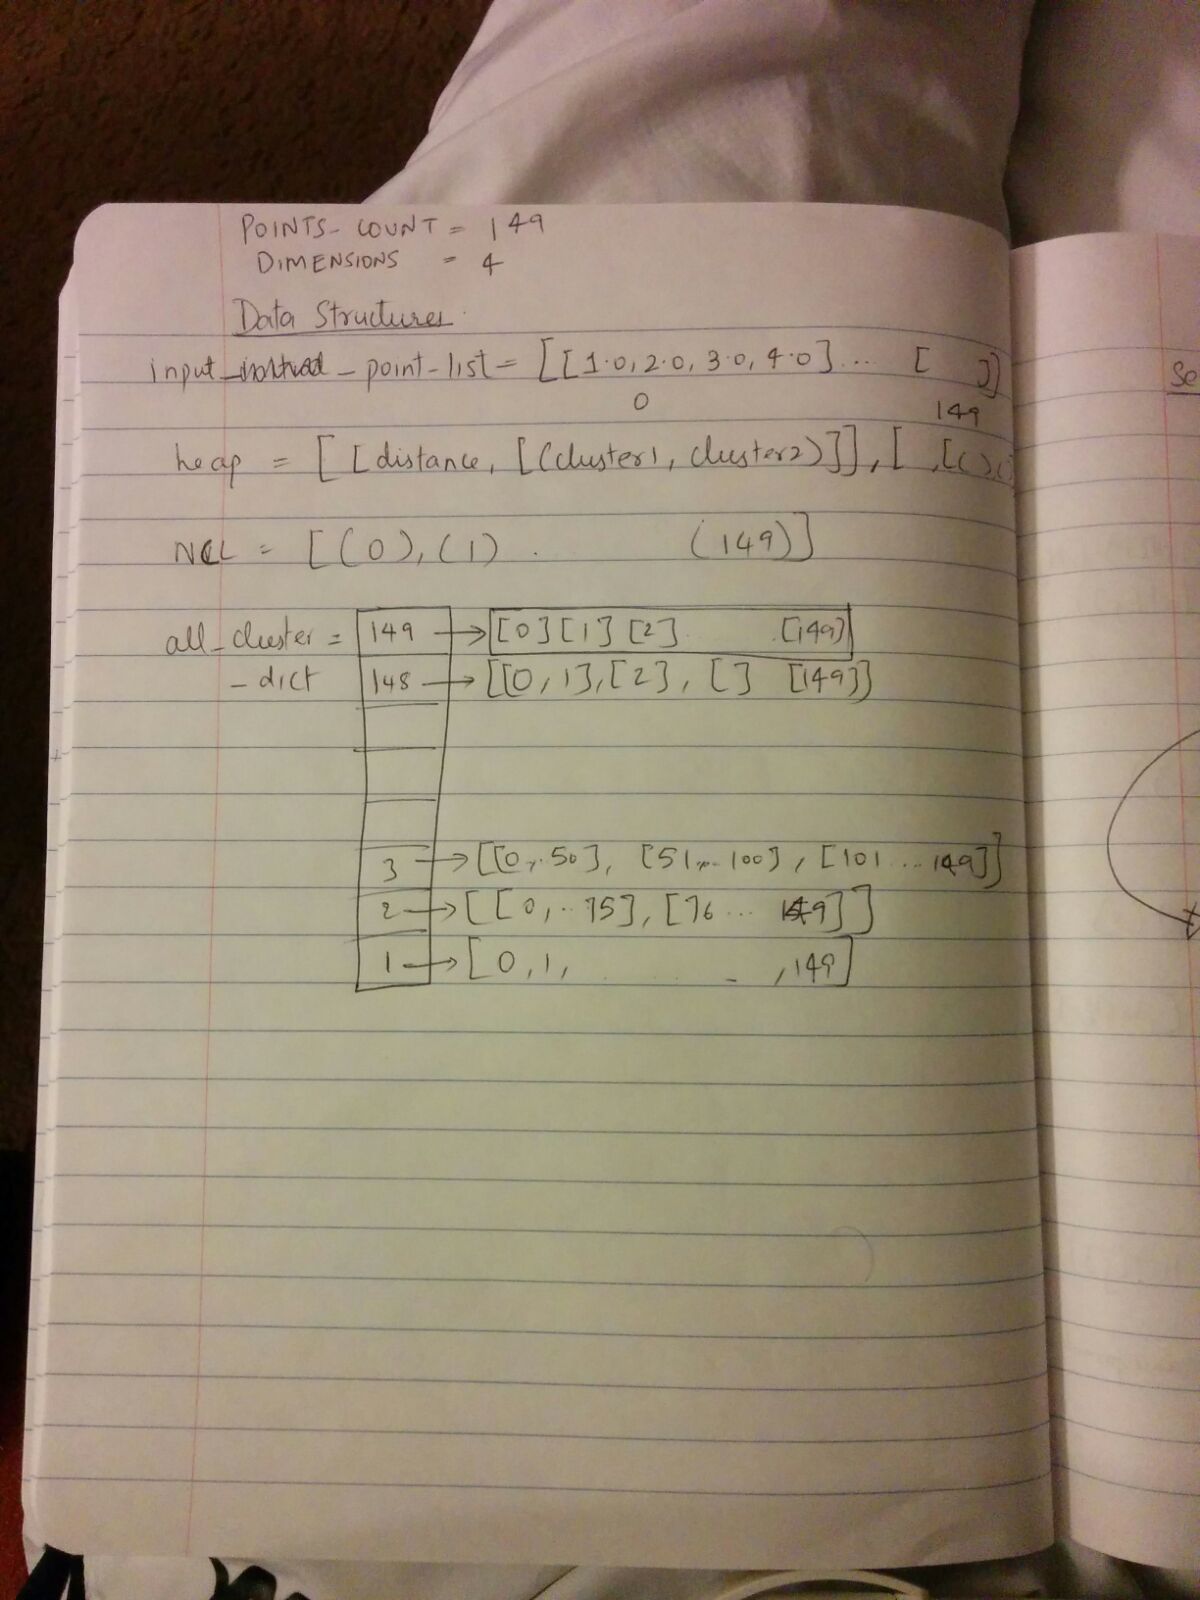 POINTS_COUNT = 149
DIMENSIONS = 4
Data Structures
input_ _point_list = [[1.0, 2.0, 3.0, 4.0] .... [ ]]
0 149
heap = [ [distance, [(cluster1, cluster2)]], [ ,[( ),(
NCL = [(0), (1) . (149)]
all_cluster = 149 → [0] [1] [2] . [149]
_dict 148 → [[0, 1], [2], [] [149]]
3 → [[0,..50], [51,..100], [101...149]]
2 → [[0,..75], [76 ... 149]]
1 → [0, 1, . . - , 149]
Se